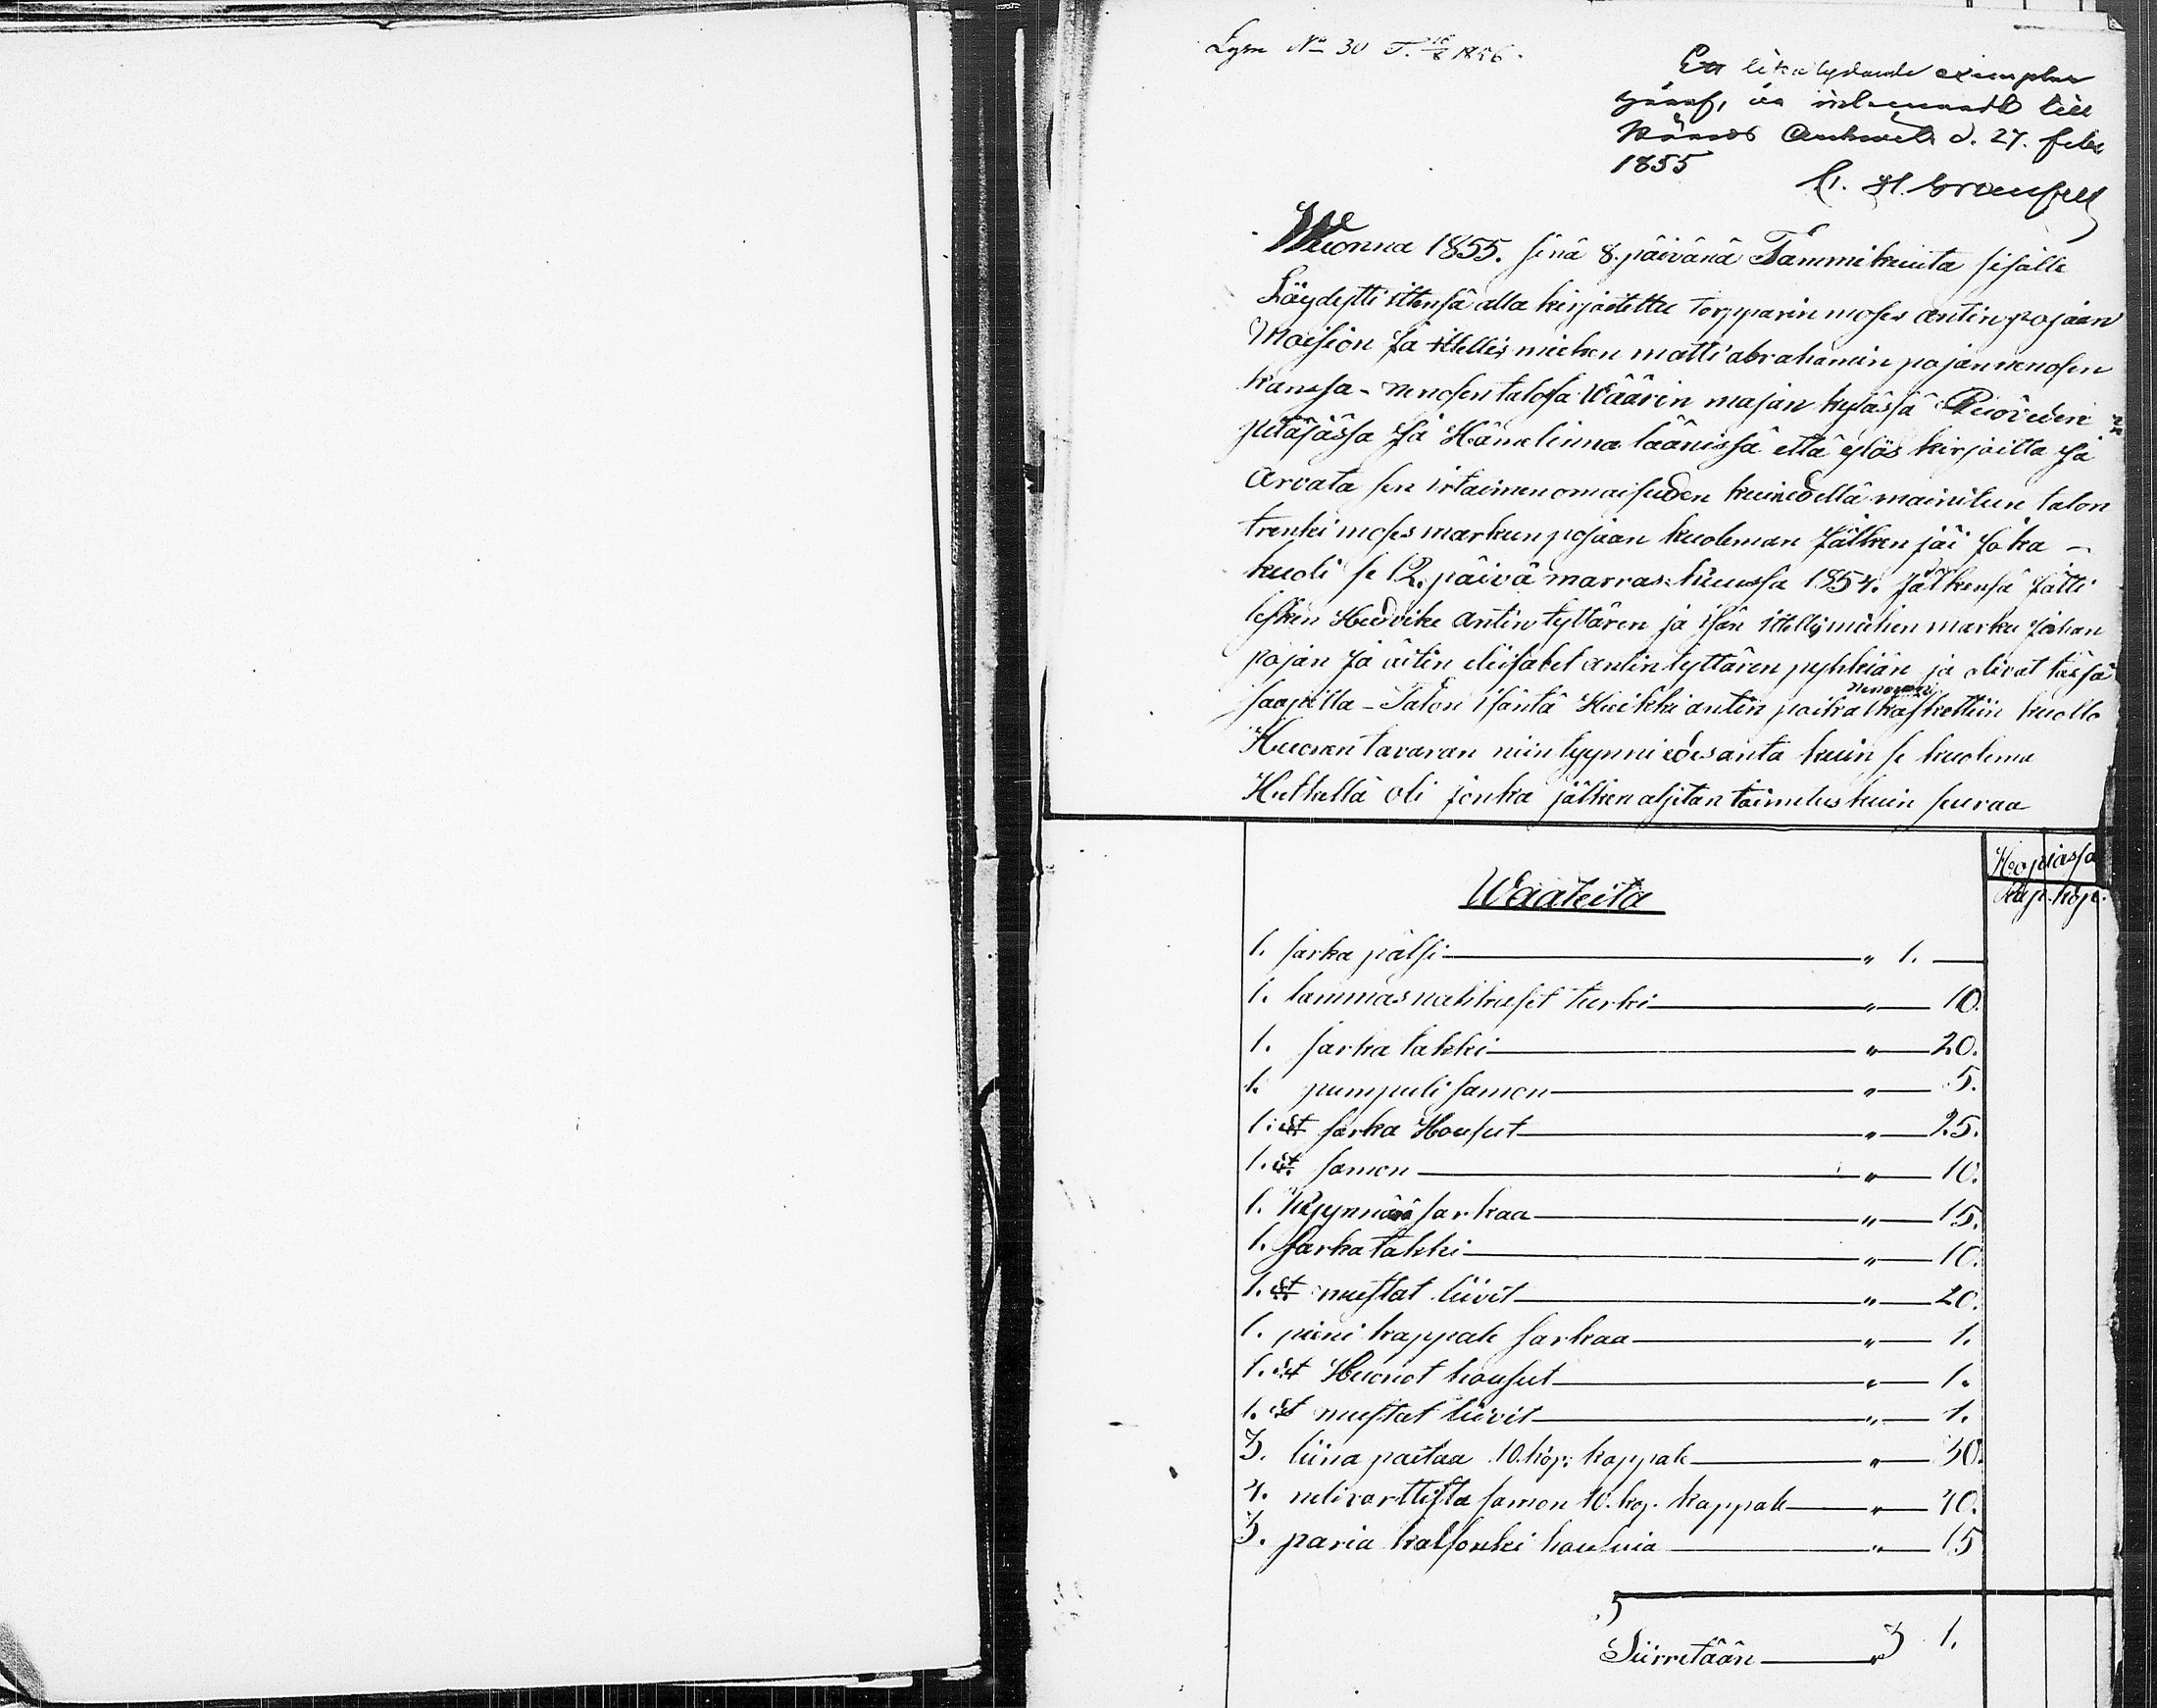 N:o 30 1856.
Ett lika lydande exemplar
till
d. 27. febr
1855
Wuonna 1855. sinä 8. päivänä Tammikuuta sisälle
Löydytti ittensä alla kirjoitettu torpparin moses antinpojaan
Moision Ja itellis miehen matti abrahamin pojan nenosen
kanssa - nenosen talosa Wäärin majan kyläsä Ruoveden
pitäjässa Ja Hämelinna läänissä että ylös kirjoitta Ja
Arvata sen irtaimen omaisuden kuin edellä mainitun talon
trenki moses markun pojaan kuoleman Jälken jäi Joka -
kuoli se 12. päivä marras kuussa 1854. Jälkensä Jätti
lesken Hedvike antin tyttären ja isän itellismiehen marku Johan
pojan Ja äitin eliisabet antin tyttären pyhkiän ja olivat tässä
saapilla - Talon isäntä Heikki antin poika nenonen käskettiin kuollo
Huonen tavaran niin tyynni edesanta kuin se kuolema
Hetkellä oli jonka jälken aljetan toimitus kuin seuraa
Hopiassa
Waateita
Rup. köp.
1. sarka pälsi " 1. —
1. lammasnahkaset turki " 10.
1. sarka takki " 20.
1. pumpuli samon " 5.
1. st sarka Housut " 25.
1. st samon " 10.
1. Kyynnärä sarkaa " 15.
1. sarka takki " 10.
1. st mustat liivit " 20.
1. pieni kappale sarkaa " 1.
1. st Huonot housut " 1.
1. st mustat liivit " 1.
3. liina paitaa 10. köp: kappale " 30.
4. nelivarttista samon 10. kop. kappale " 40.
3. paria kalsonki housuia " 15
Siirretään " 3 1.